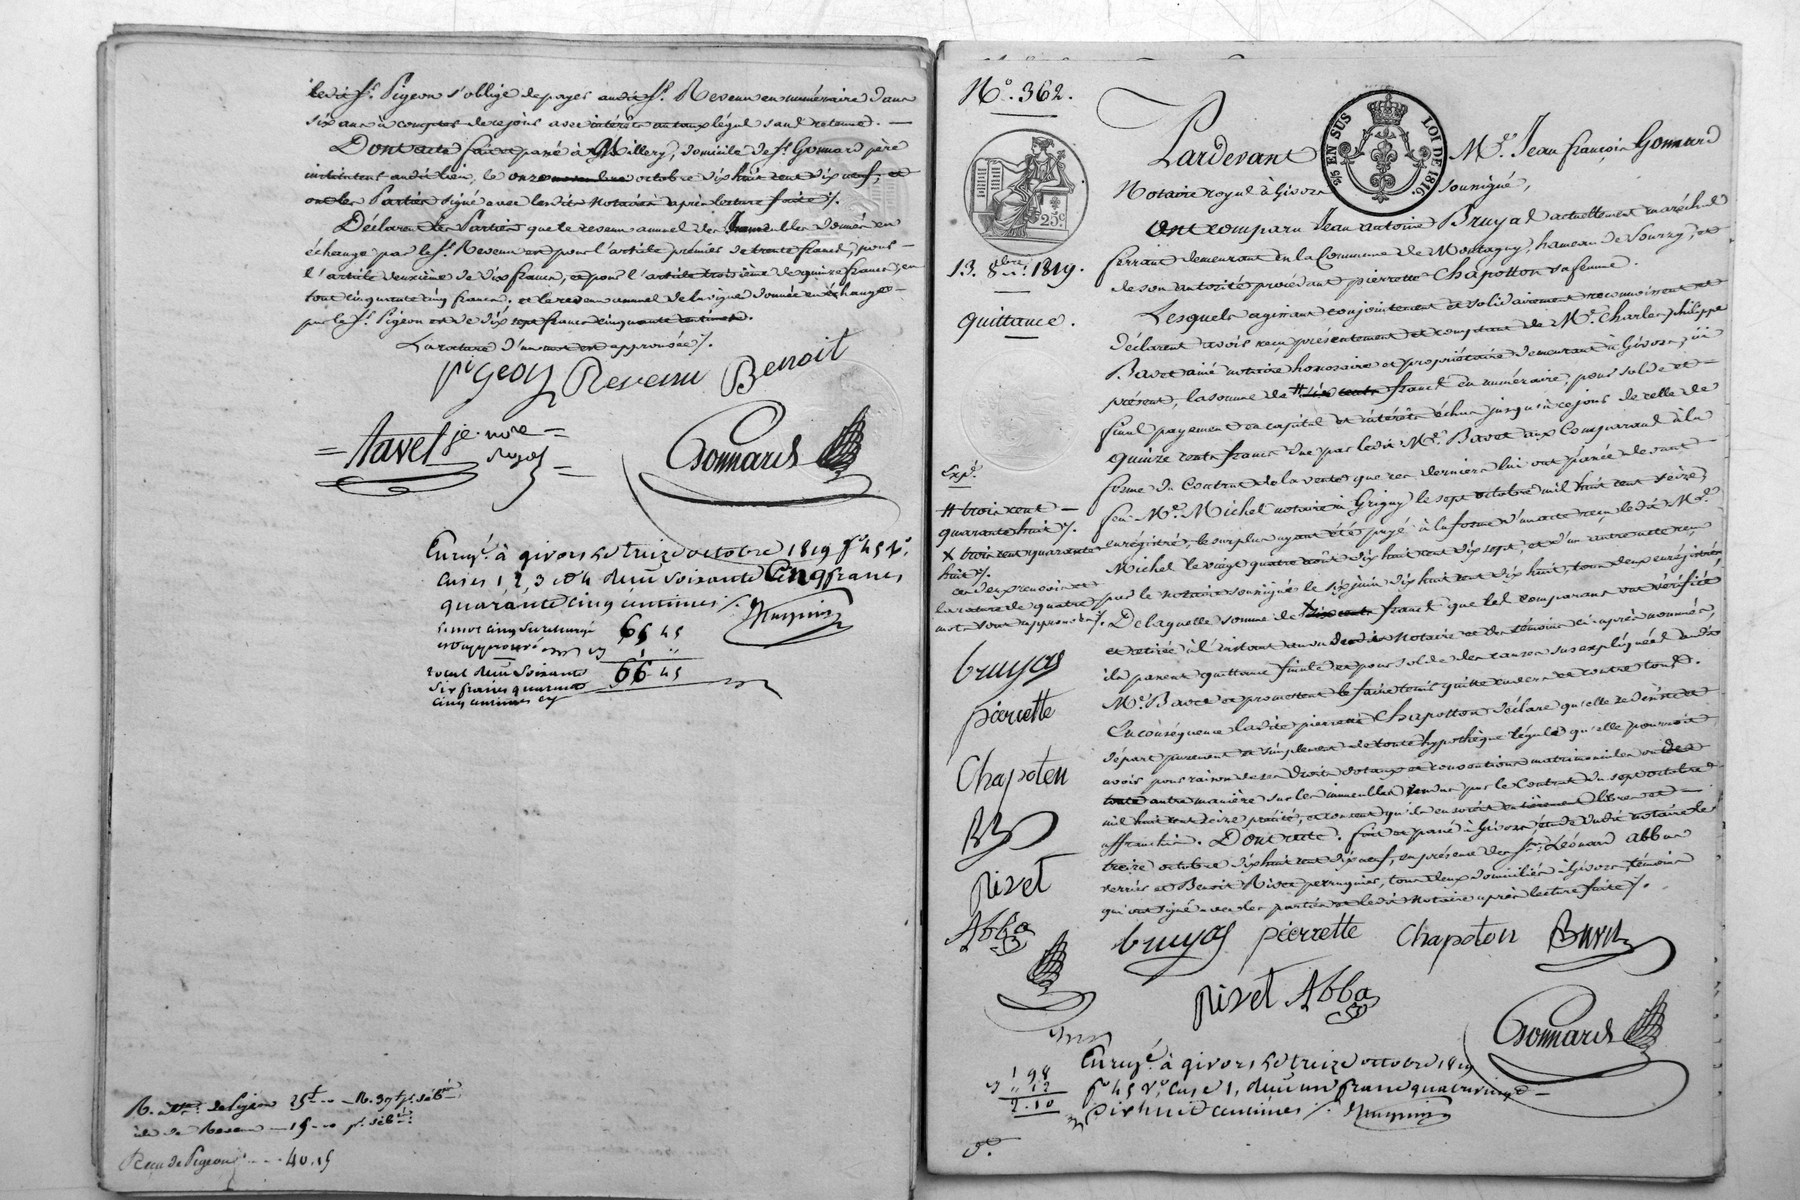 ledit Sr. Pigeon s'oblige de payer audit Sr. Revenu en numéraire dans
six ans à compter de ce jour avec intérêts au taux légal sans retenue. —
Dont acte fait et passé à Millery, domicile de Sr. Gonnard père
le onze octobre dix huit cent dix neuf, et
ont les Parties signé avec lesdits Notaires après lecture faite ./.
Déclarent les Parties que le revenu annuel des Immeubles donnés en
échange par le Sr. Revenu est pour l'article premier de trente francs, pour —
l'article deuxième de dix francs, et pour l'article troisième de quinze francs, en
tout cinquante cinq francs. et le revenu annuel de la vigne donnée en échange —
par le Sr. Pigeon est de dix sept francs cinquante centimes.
La rature d'un mot est approuvée ./.
pigeon Revenu Benoit
= Tavel je. no.re =
Royal =
Gonnard
Enregt. à givors le treize octobre 1819 fo. 45 Ro.
Cases 1, 2, 3 et 4 Reçu Soixante Cinq francs
quarante cinq centimes ./.
le mot cinq surchargé 65 45
et approuvé
reçu Soixante 66 45
Six francs quarante
cinq centimes
de Pigeon 25f
de Revenu — 15
Reçu de Pigeon - - - 40.15
No. 362.
25c
5/5 EN SUS LOI DE 1816.
13. 8bre. 1819.
Quittance.
Pardevant Me. Jean françois Gonnard
Notaire royal à Givors soussigné,
Ont comparu Jean antoine Bruyas actuellement maréchal
ferrant demeurant en la Commune de Montagny, hameau de Sourzy, et
de son autorité procédant pierrette Chapotton sa femme.
Lesquels agissant conjointement et solidairement reconnoissent et
déclarent avoir reçu présentement et comptant de Me. Charles philippe
Bavet ainé notaire honoraire et propriétaire demeurant à Givors, ici
présent, la somme de # six cents francs en numéraire, pour solde et —
final payement en capital et intérêts échus jusqu'à ce jour de celle de
quinze cents francs due par ledit Me. Bavet aux Comparans à la
forme du Contrat de la vente que ces derniers lui ont passée devant
feu Me. Michel notaire à Grigny le sept octobre mil huit cent seize,
enrégistré; le surplus ayant été payé à la forme d'un acte reçu ledit Me.
Michel le vingt quatre août dix huit cent dix sept, et d'un autre acte reçu
par le notaire soussigné le six juin dix huit cent dix huit, tous deux enrégistrés.
De laquelle somme de X six cents francs que les comparans ont vérifiée
et retirée à l'instant en vu desdits Notaire et des témoins ci-après nommés
ils passent quittance finale et pour solde des causes sus expliquées audit
Me. Bavet et promettent le faire tenir quitte envers et contre tous.
En conséquence ladite pierrette Chapotton déclare qu'elle se désiste et
départ purement et simplement de toute hypothèque légale qu'elle pourroit
avoir pour raison de ses droits dotaux et conventions matrimoniales ou de
toute autre manière sur les immeubles vendus par le Contrat du sept octobre
mil huit cent seize précité, et consent qu'ils en soient entièrement libres et —
affranchis. Dont acte. fait et passé à Givors, étude dudit notaire le
treize octobre dix huit cent dix neuf, en présence des Srs. Léonard abba
verrier et Benoit Rivet perruquier, tous deux domiciliés à Givors, témoins
qui ont signé avec les parties et ledit Notaire après lecture faite ./.
Expé.
# trois cent —
quarante huit ./.
X trois cent quarante
huit ./.
ces deux renvois et
la rature de quatre
mots sont approuvés ./.
bruyas
pierrette
Chapoten
BB
Rivet
Abba
bruyas pierrette Chapoton Bavet
Rivet Abba
Gonnard
1 98
" 12
2.10
Enregt. à givors le treize octobre 1819
fo. 45 Vo. Case 1, Reçu un franc quatrevingt —
dix huit centimes ./.